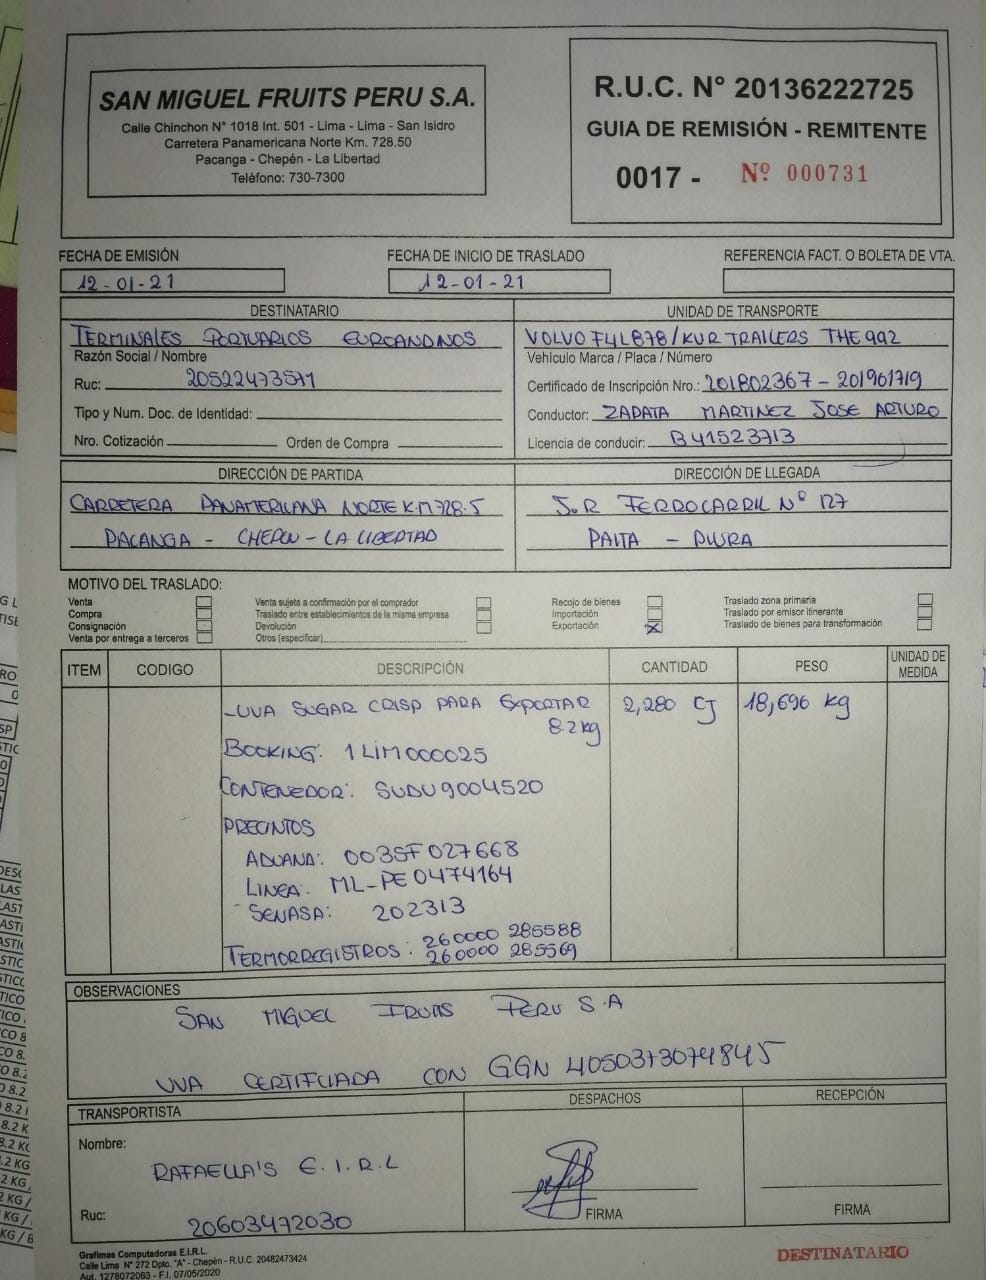 SAN MIGUEL FRUITS PERU S.A.
Calle Chinchon N° 1018 Int. 501 - Lima - Lima - San Isidro
Carretera Panamericana Norte Km. 728.50
Pacanga - Chepén - La Libertad
Teléfono: 730-7300
R.U.C. N° 20136222725
GUIA DE REMISIÓN - REMITENTE
0017 - Nº 000731
FECHA DE EMISIÓN
12-01-21
FECHA DE INICIO DE TRASLADO
12-01-21
REFERENCIA FACT. O BOLETA DE VTA.
DESTINATARIO
TERMINALES PORTUARIOS EUROANDINOS
Razón Social / Nombre
Ruc: 20522473571
Tipo y Num. Doc. de Identidad:
Nro. Cotización Orden de Compra
UNIDAD DE TRANSPORTE
VOLVO F4L878/KUR TRAILERS THE992
Vehículo Marca / Placa / Número
Certificado de Inscripción Nro.: 201802367 - 201961719
Conductor: ZAPATA MARTINEZ JOSE ARTURO
Licencia de conducir: B41523713
DIRECCIÓN DE PARTIDA
CARRETERA PANAMERICANA NORTE K.M 728.5
PACANGA - CHEPEN - LA LIBERTAD
DIRECCIÓN DE LLEGADA
J.R FERROCARRIL Nº 127
PAITA - PIURA
MOTIVO DEL TRASLADO:
Venta
Compra
Consignación
Venta por entrega a terceros
Venta sujeta a confirmación por el comprador
Traslado entre establecimientos de la misma empresa
Devolución
Otros (especificar)
Recojo de bienes
Importación
Exportación X
Traslado zona primaria
Traslado por emisor itinerante
Traslado de bienes para transformación
ITEM CODIGO DESCRIPCIÓN CANTIDAD PESO UNIDAD DE MEDIDA
-UVA SUGAR CRISP PARA EXPORTAR 2,280 CJ 18,696 kg
8.2 kg
BOOKING: 1LIM000025
CONTENEDOR: SUDU9004520
PRECINTOS
ADUANA: 003SF027668
LINEA: ML-PE0474164
- SENASA: 202313
TERMORREGISTROS: 260000 285588
260000 285569
OBSERVACIONES
SAN MIGUEL FRUITS PERU S.A
UVA CERTIFCIADA CON GGN 4050373074845
TRANSPORTISTA
Nombre:
RAFAELLA'S E.I.R.L
Ruc: 20603472030
DESPACHOS
FIRMA
RECEPCIÓN
FIRMA
Grafimas Computadoras E.I.R.L.
Calle Lima N° 272 Dpto. "A" - Chepén - R.U.C. 20482473424
Aut. 1278072063 - F.I. 07/05/2020
DESTINATARIO